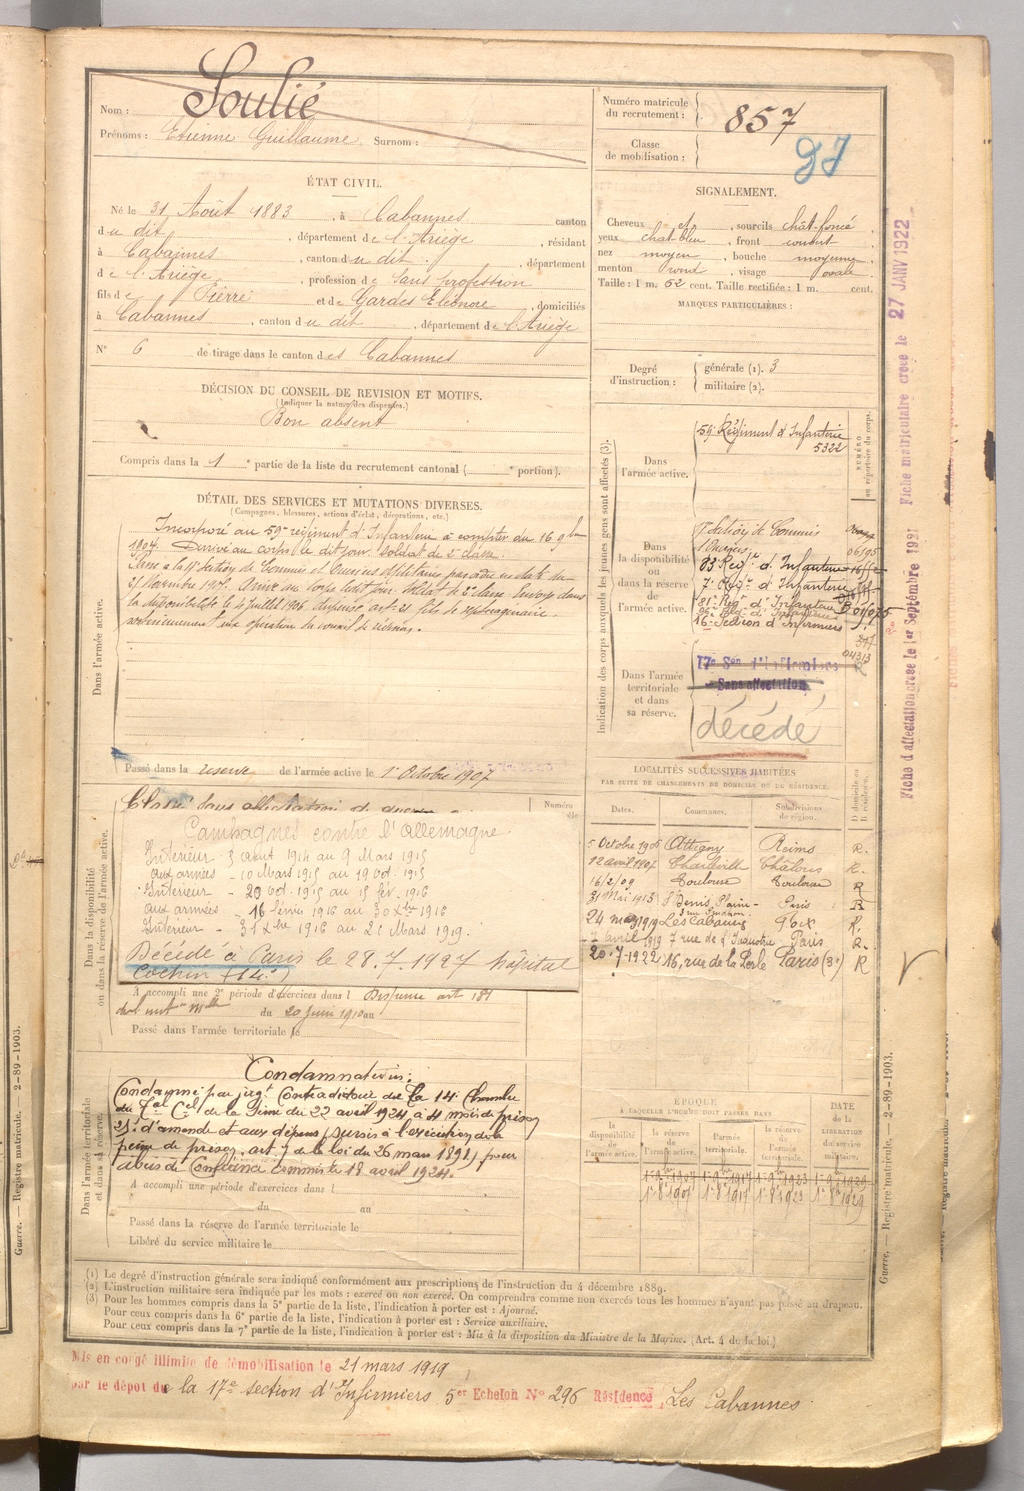 Nom : Soulié
Prénoms : Etienne Guillaume. Surnom :
Numéro matricule du recrutement : 857
Classe de mobilisation :
ÉTAT CIVIL.
Né le 31 Août 1883, à Cabannes canton
du dit, département de l'Ariège, résidant
à Cabannes, canton du dit, département
de l'Ariège, profession de Sans profession
fils de Pierre et de Gardes Eléonore, domiciliés
à Cabannes, canton du dit, département de l'Ariège
N° 6 de tirage dans le canton des Cabannes
SIGNALEMENT.
Cheveux et, sourcils chât-foncé,
yeux chat-bleu, front couvert
nez moyen, bouche moyenne,
menton rond, visage ovale.
Taille : 1 m. 62 cent. Taille rectifiée : 1 m. cent.
MARQUES PARTICULIÈRES :
Degré d'instruction : générale (1). 3
militaire (2).
DÉCISION DU CONSEIL DE REVISION ET MOTIFS.
(Indiquer la nature des dispenses.)
Bon absent
Compris dans la 1e partie de la liste du recrutement cantonal ( e portion).
DÉTAIL DES SERVICES ET MUTATIONS DIVERSES.
(Campagnes, blessures, actions d'éclat, décorations, etc.)
Dans l'armée active.
Incorporé au 59e régiment d'Infanterie à compter du 16 9bre
1904. Arrivé au corps le dit jour. Soldat de 2e classe.
Section de Commis et Ouvriers Militaires par ordre en date du
21 Novembre 1905. Arrivé au corps le dit jour. Soldat de 2e classe. Envoyé dans
la disponibilité le 4 juillet 1906. art. 21 fils de septuagénaire
postérieurement aux opérations du conseil de révision.
Passé dans la reserve de l'armée active le 1er Octobre 1907
Indication des corps auxquels les jeunes gens sont affectés (3).
NUMÉRO au répertoire du corps.
Dans l'armée active.
59e Régiment d'Infanterie
5322
Dans la disponibilité ou dans la réserve de l'armée active.
Section de Commis
Ouvriers
83 Régt d'Infanterie
7e Régt d'Infanterie
81e Régt d'Infanterie
16e Section d'Infirmiers
Dans l'armée territoriale et dans sa réserve.
17e Son d'Infirmiers
Sans affectation
décédé
Dans la disponibilité ou dans la réserve de l'armée active.
Classé dans affectation de
Numéro
Campagnes contre l'Allemagne
Intérieur - 3 août 1914 au 9 Mars 1915
aux armées - 10 Mars 1915 au 19 oct. 1915
Intérieur - 20 oct. 1915 au 15 fév. 1916
aux armées - 16 février 1916 au 30 Xbre 1916
Intérieur - 31 Xbre 1916 au 21 Mars 1919.
Décédé à Paris le 28.7.1927 hôpital
Cochin (14e)
A accompli une 2e période d'exercices dans l Dispense art 181
du 20 juin 1910 au
Passé dans l'armée territoriale le
LOCALITÉS SUCCESSIVES HABITÉES
PAR SUITE DE CHANGEMENTS DE DOMICILE OU DE RÉSIDENCE.
Dates. Communes. Subdivisions de région. D domicile ou R résidence.
5 Octobre 1905 Attigny Reims R.
12 avril 1907 Charleville Châlons R.
16/2/09 Toulouse Toulouse R
31 Mai 1913 St Denis Paris R
24 mars 1919 Les Cabannes Foix R.
7 avril 1919 7 rue de Paris R.
20-7-1922 16, rue de la Perle Paris (3e) R
Dans l'armée territoriale et dans sa réserve.
Condamnation :
Condamné par jugt Contradictoire de la 14e Chambre
du Tal Cel de la Seine du 22 avril 1924 à 4 mois de prison
25f d'amende et aux dépens (sursis à l'exécution de la
peine de prison, art. 7 de la loi du 26 mars 1891) pour
abus de Confiance commis le 18 avril 1924.
A accompli une période d'exercices dans l
du au
Passé dans la réserve de l'armée territoriale le
Libéré du service militaire le
ÉPOQUE
À LAQUELLE L'HOMME DOIT PASSER DANS
la disponibilité de l'armée active. la réserve de l'armée active. l'armée territoriale. la réserve de l'armée territoriale. DATE de la LIBÉRATION du service militaire.
1er 8bre 1907 1er 8bre 1917 1er 8bre 1923 1er 8bre 1929
(1) Le degré d'instruction générale sera indiqué conformément aux prescriptions de l'instruction du 4 décembre 1889.
(2) L'instruction militaire sera indiquée par les mots : exercé ou non exercé. On comprendra comme non exercés tous les hommes n'ayant pas passé au drapeau.
(3) Pour les hommes compris dans la 5e partie de la liste, l'indication à porter est : Ajourné.
Pour ceux compris dans la 6e partie de la liste, l'indication à porter est : Service auxiliaire.
Pour ceux compris dans la 7e partie de la liste, l'indication à porter est : Mis à la disposition du Ministre de la Marine. (Art. 4 de la loi.)
Mis en congé illimité de démobilisation le 21 mars 1919
par le dépôt de la 17e section d'Infirmiers 5e Echelon N° 296 Résidence, Les Cabannes
Guerre. — Registre matricule. — 2-89-1903.
Guerre. — Registre matricule. — 2-89-1903.
Fiche d'affectation créée le 1er Septembre 1921 Fiche matriculaire créée le 27 JANV 1922